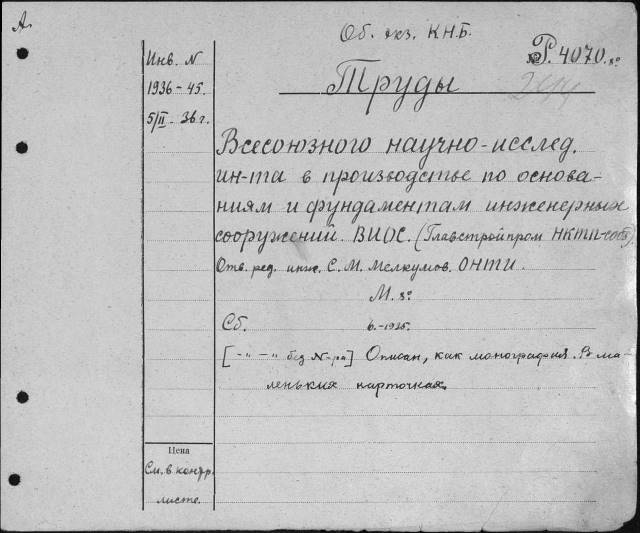 А.
Об. экз. К.Н.Б.
Инв. N
1936-45.
5/II-36 г.
№ Р. 4070. 8°
Труды
Всесоюзного научно-исслед.
ин-та в производстве по основа-
ниям и фундаментам инженерных
сооружений. ВИОС. (Главстройпром НКТП-СССР)
Отв. ред. инж. С. М. Мелкумов. ОНТИ.
М. 8°
Сб. 6.-1935.
[-"- -"- без N-ра] Описан, как монография. В ма-
леньких карточках.
Цена
См. в контр.
листе.